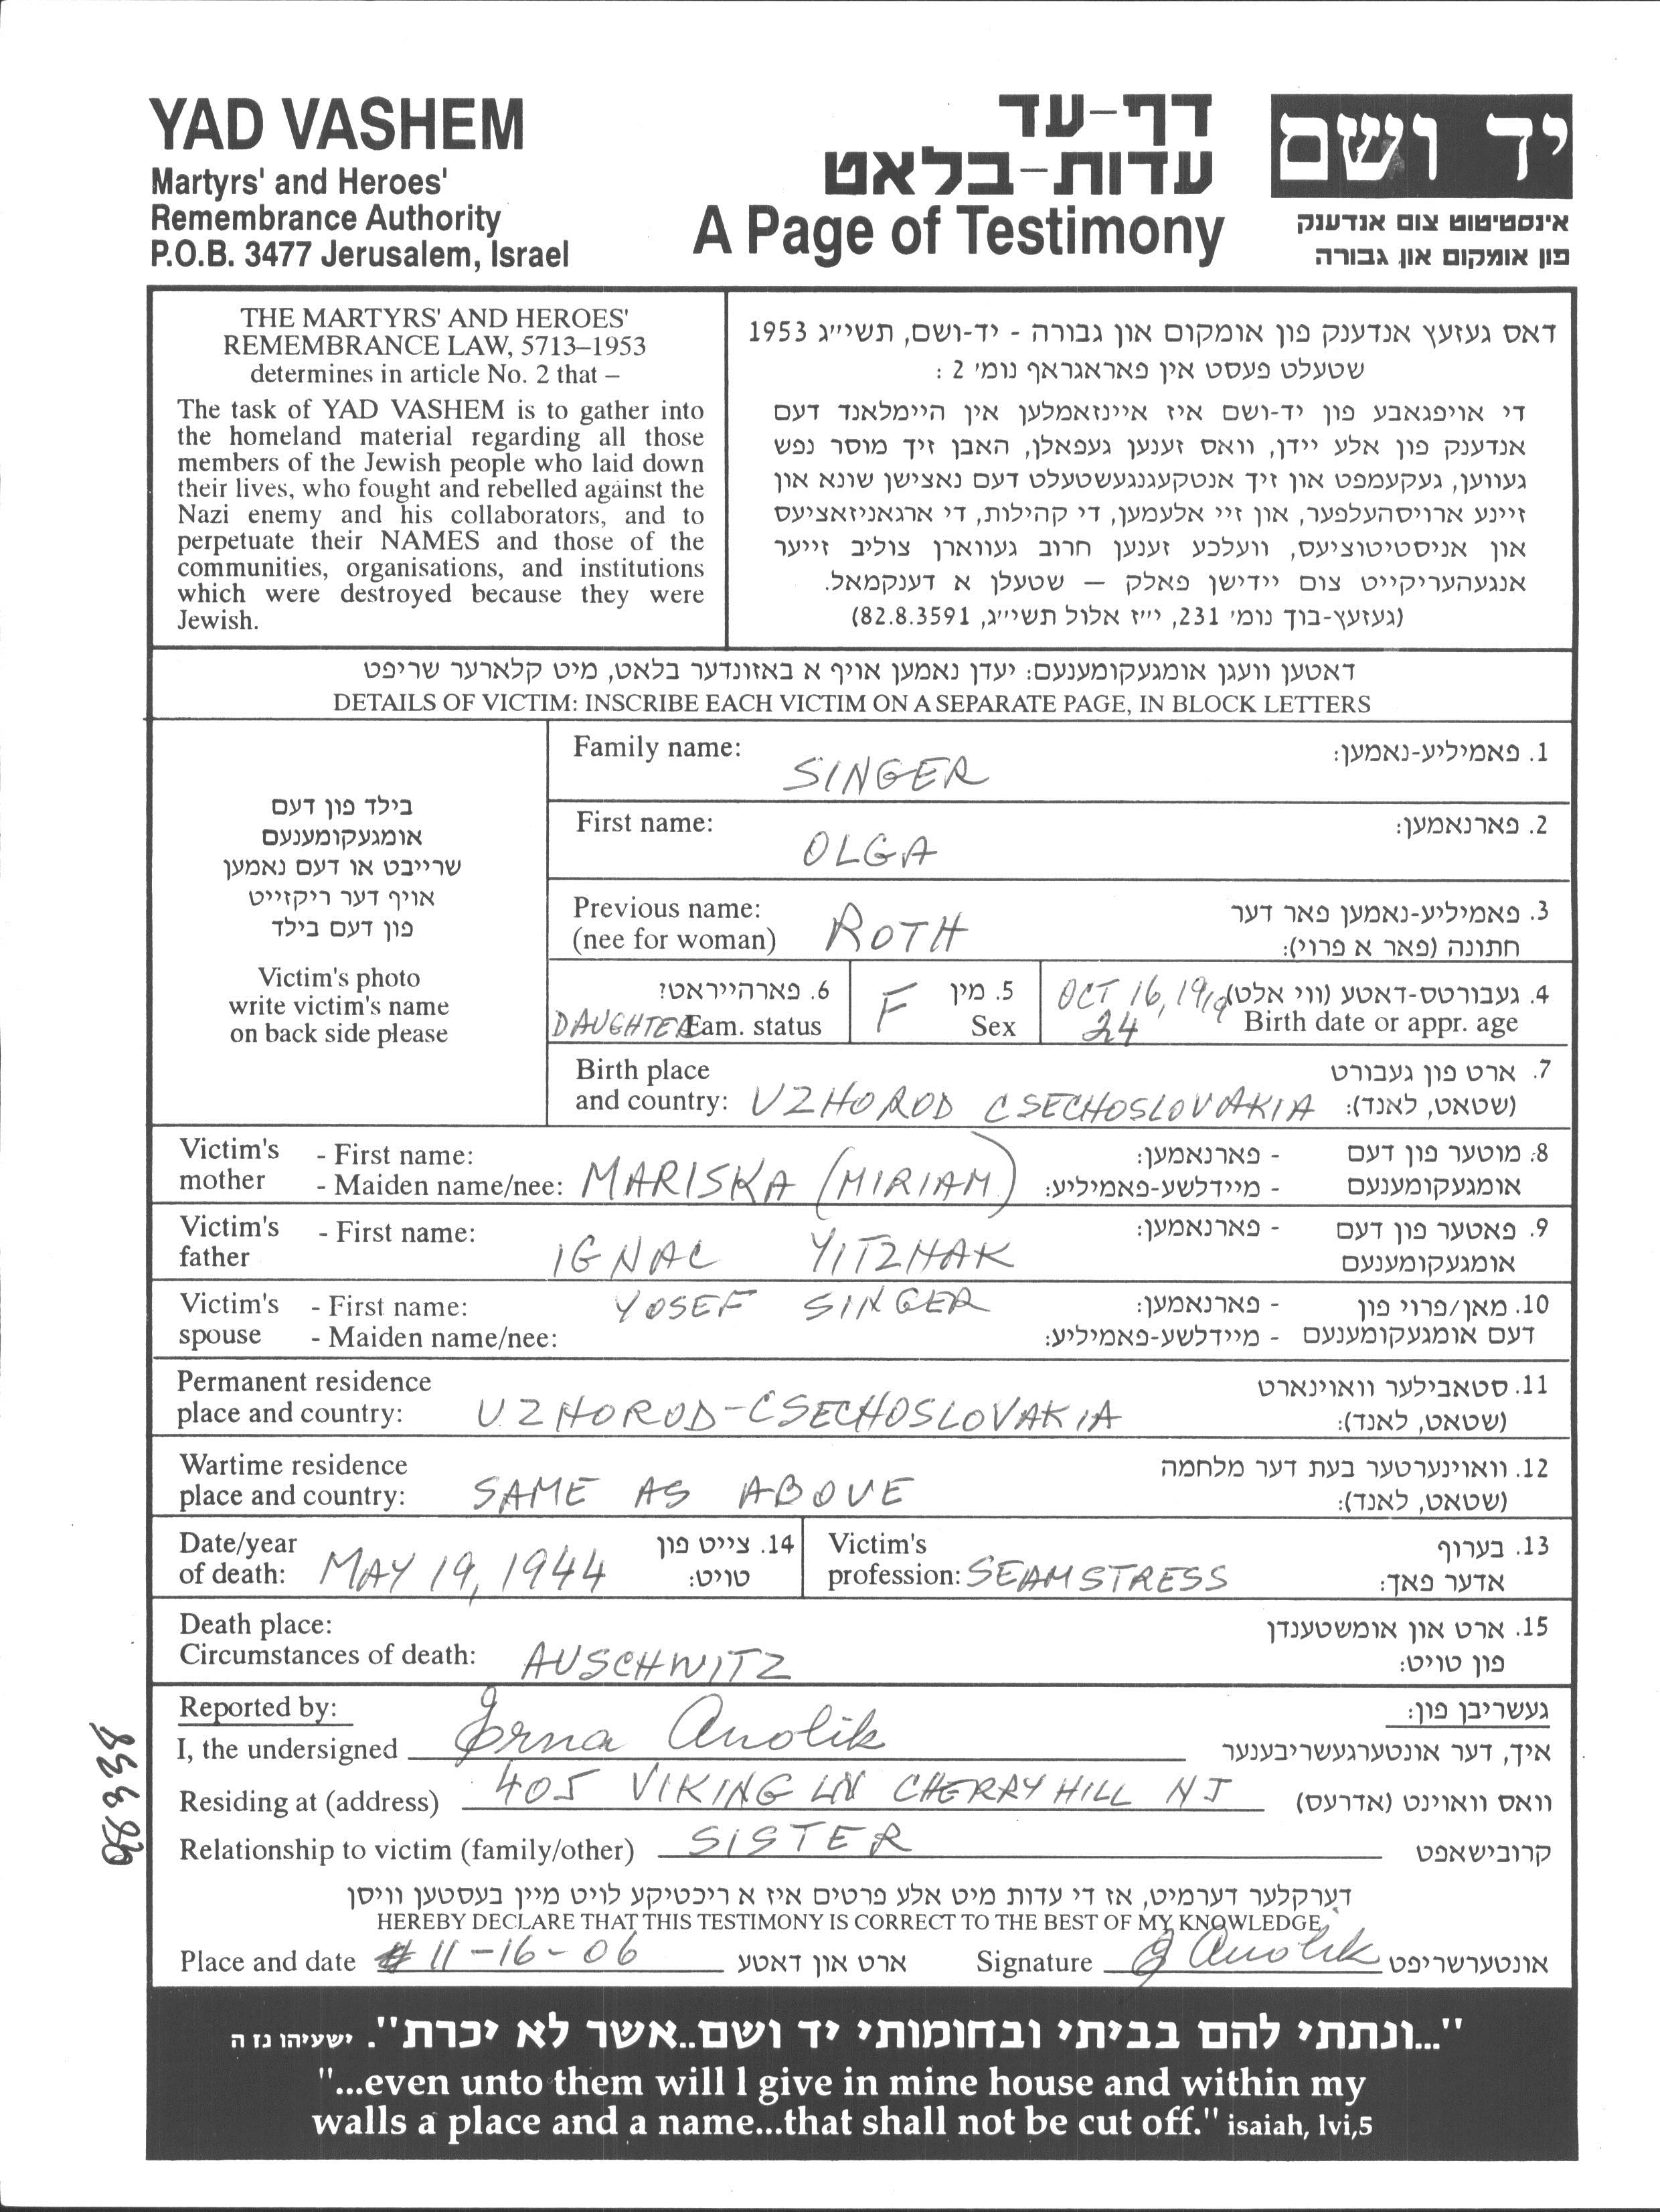 YAD VASHEM
Martyrs' and Heroes'
Remembrance Authority
P.O.B. 3477 Jerusalem, Israel
דף-עד
עדות-בלאט
A Page of Testimony
יד ושם
אינסטיטוט צום אנדענק
פון אומקום און גבורה
THE MARTYRS' AND HEROES'
REMEMBRANCE LAW, 5713–1953
determines in article No. 2 that –
The task of YAD VASHEM is to gather into
the homeland material regarding all those
members of the Jewish people who laid down
their lives, who fought and rebelled against the
Nazi enemy and his collaborators, and to
perpetuate their NAMES and those of the
communities, organisations, and institutions
which were destroyed because they were
Jewish.
דאס געזעץ אנדענק פון אומקום און גבורה - יד-ושם, תשי״ג 1953
שטעלט פעסט אין פאראגראף נומ' 2 :
די אויפגאבע פון יד-ושם איז איינזאמלען אין היימלאנד דעם
אנדענק פון אלע יידן, וואס זענען געפאלן, האבן זיך מוסר נפש
געווען, געקעמפט און זיך אנטקעגנגעשטעלט דעם נאצישן שונא און
זיינע ארויסהעלפער, און זיי אלעמען, די קהילות, די ארגאניזאציעס
און אניסטיטוציעס, וועלכע זענען חרוב געווארן צוליב זייער
אנגעהעריקייט צום יידישן פאלק — שטעלן א דענקמאל.
(געזעץ-בוך נומ' 231, י״ז אלול תשי״ג, 82.8.3591)
דאטען וועגן אומגעקומענעם: יעדן נאמען אויף א באזונדער בלאט, מיט קלארער שריפט
DETAILS OF VICTIM: INSCRIBE EACH VICTIM ON A SEPARATE PAGE, IN BLOCK LETTERS
בילד פון דעם
אומגעקומענעם
שרייבט או דעם נאמען
אויף דער ריקזייט
פון דעם בילד
Victim's photo
write victim's name
on back side please
Family name: SINGER 1. פאמיליע-נאמען:
First name: OLGA 2. פארנאמען:
Previous name: ROTH 3. פאמיליע-נאמען פאר דער
(nee for woman) חתונה (פאר א פרוי):
6. פארהייראט? 5. מין OCT 16, 1919 4. געבורטס-דאטע (ווי אלט)
DAUGHTER Fam. status F Sex 24 Birth date or appr. age
Birth place 7. ארט פון געבורט
and country: UZHOROD CSECHOSLOVAKIA (שטאט, לאנד):
Victim's - First name: - פארנאמען: 8. מוטער פון דעם
mother - Maiden name/nee: MARISKA (MIRIAM) - מיידלשע-פאמיליע: אומגעקומענעם
Victim's - First name: - פארנאמען: 9. פאטער פון דעם
father IGNAC YITZHAK אומגעקומענעם
Victim's - First name: YOSEF SINGER - פארנאמען: 10. מאן/פרוי פון
spouse - Maiden name/nee: - מיידלשע-פאמיליע: דעם אומגעקומענעם
Permanent residence 11. סטאבילער וואוינארט
place and country: UZHOROD-CSECHOSLOVAKIA (שטאט, לאנד):
Wartime residence 12. וואוינערטער בעת דער מלחמה
place and country: SAME AS ABOVE (שטאט, לאנד):
Date/year 14. צייט פון Victim's 13. בערוף
of death: MAY 19, 1944 טויט: profession: SEAMSTRESS אדער פאך:
Death place: 15. ארט און אומשטענדן
Circumstances of death: AUSCHWITZ פון טויט:
Reported by: געשריבן פון:
I, the undersigned Erna Anolik איך, דער אונטערגעשריבענער
Residing at (address) 405 VIKING LN CHERRY HILL NJ וואס וואוינט (אדרעס)
Relationship to victim (family/other) SISTER קרובישאפט
דערקלער דערמיט, אז די עדות מיט אלע פרטים איז א ריכטיקע לויט מיין בעסטען וויסן
HEREBY DECLARE THAT THIS TESTIMONY IS CORRECT TO THE BEST OF MY KNOWLEDGE
Place and date 11-16-06 ארט און דאטע Signature E Anolik אונטערשריפט
"...ונתתי להם בביתי ובחומותי יד ושם..אשר לא יכרת". ישעיהו נז ה
"...even unto them will I give in mine house and within my
walls a place and a name...that shall not be cut off." isaiah, lvi,5